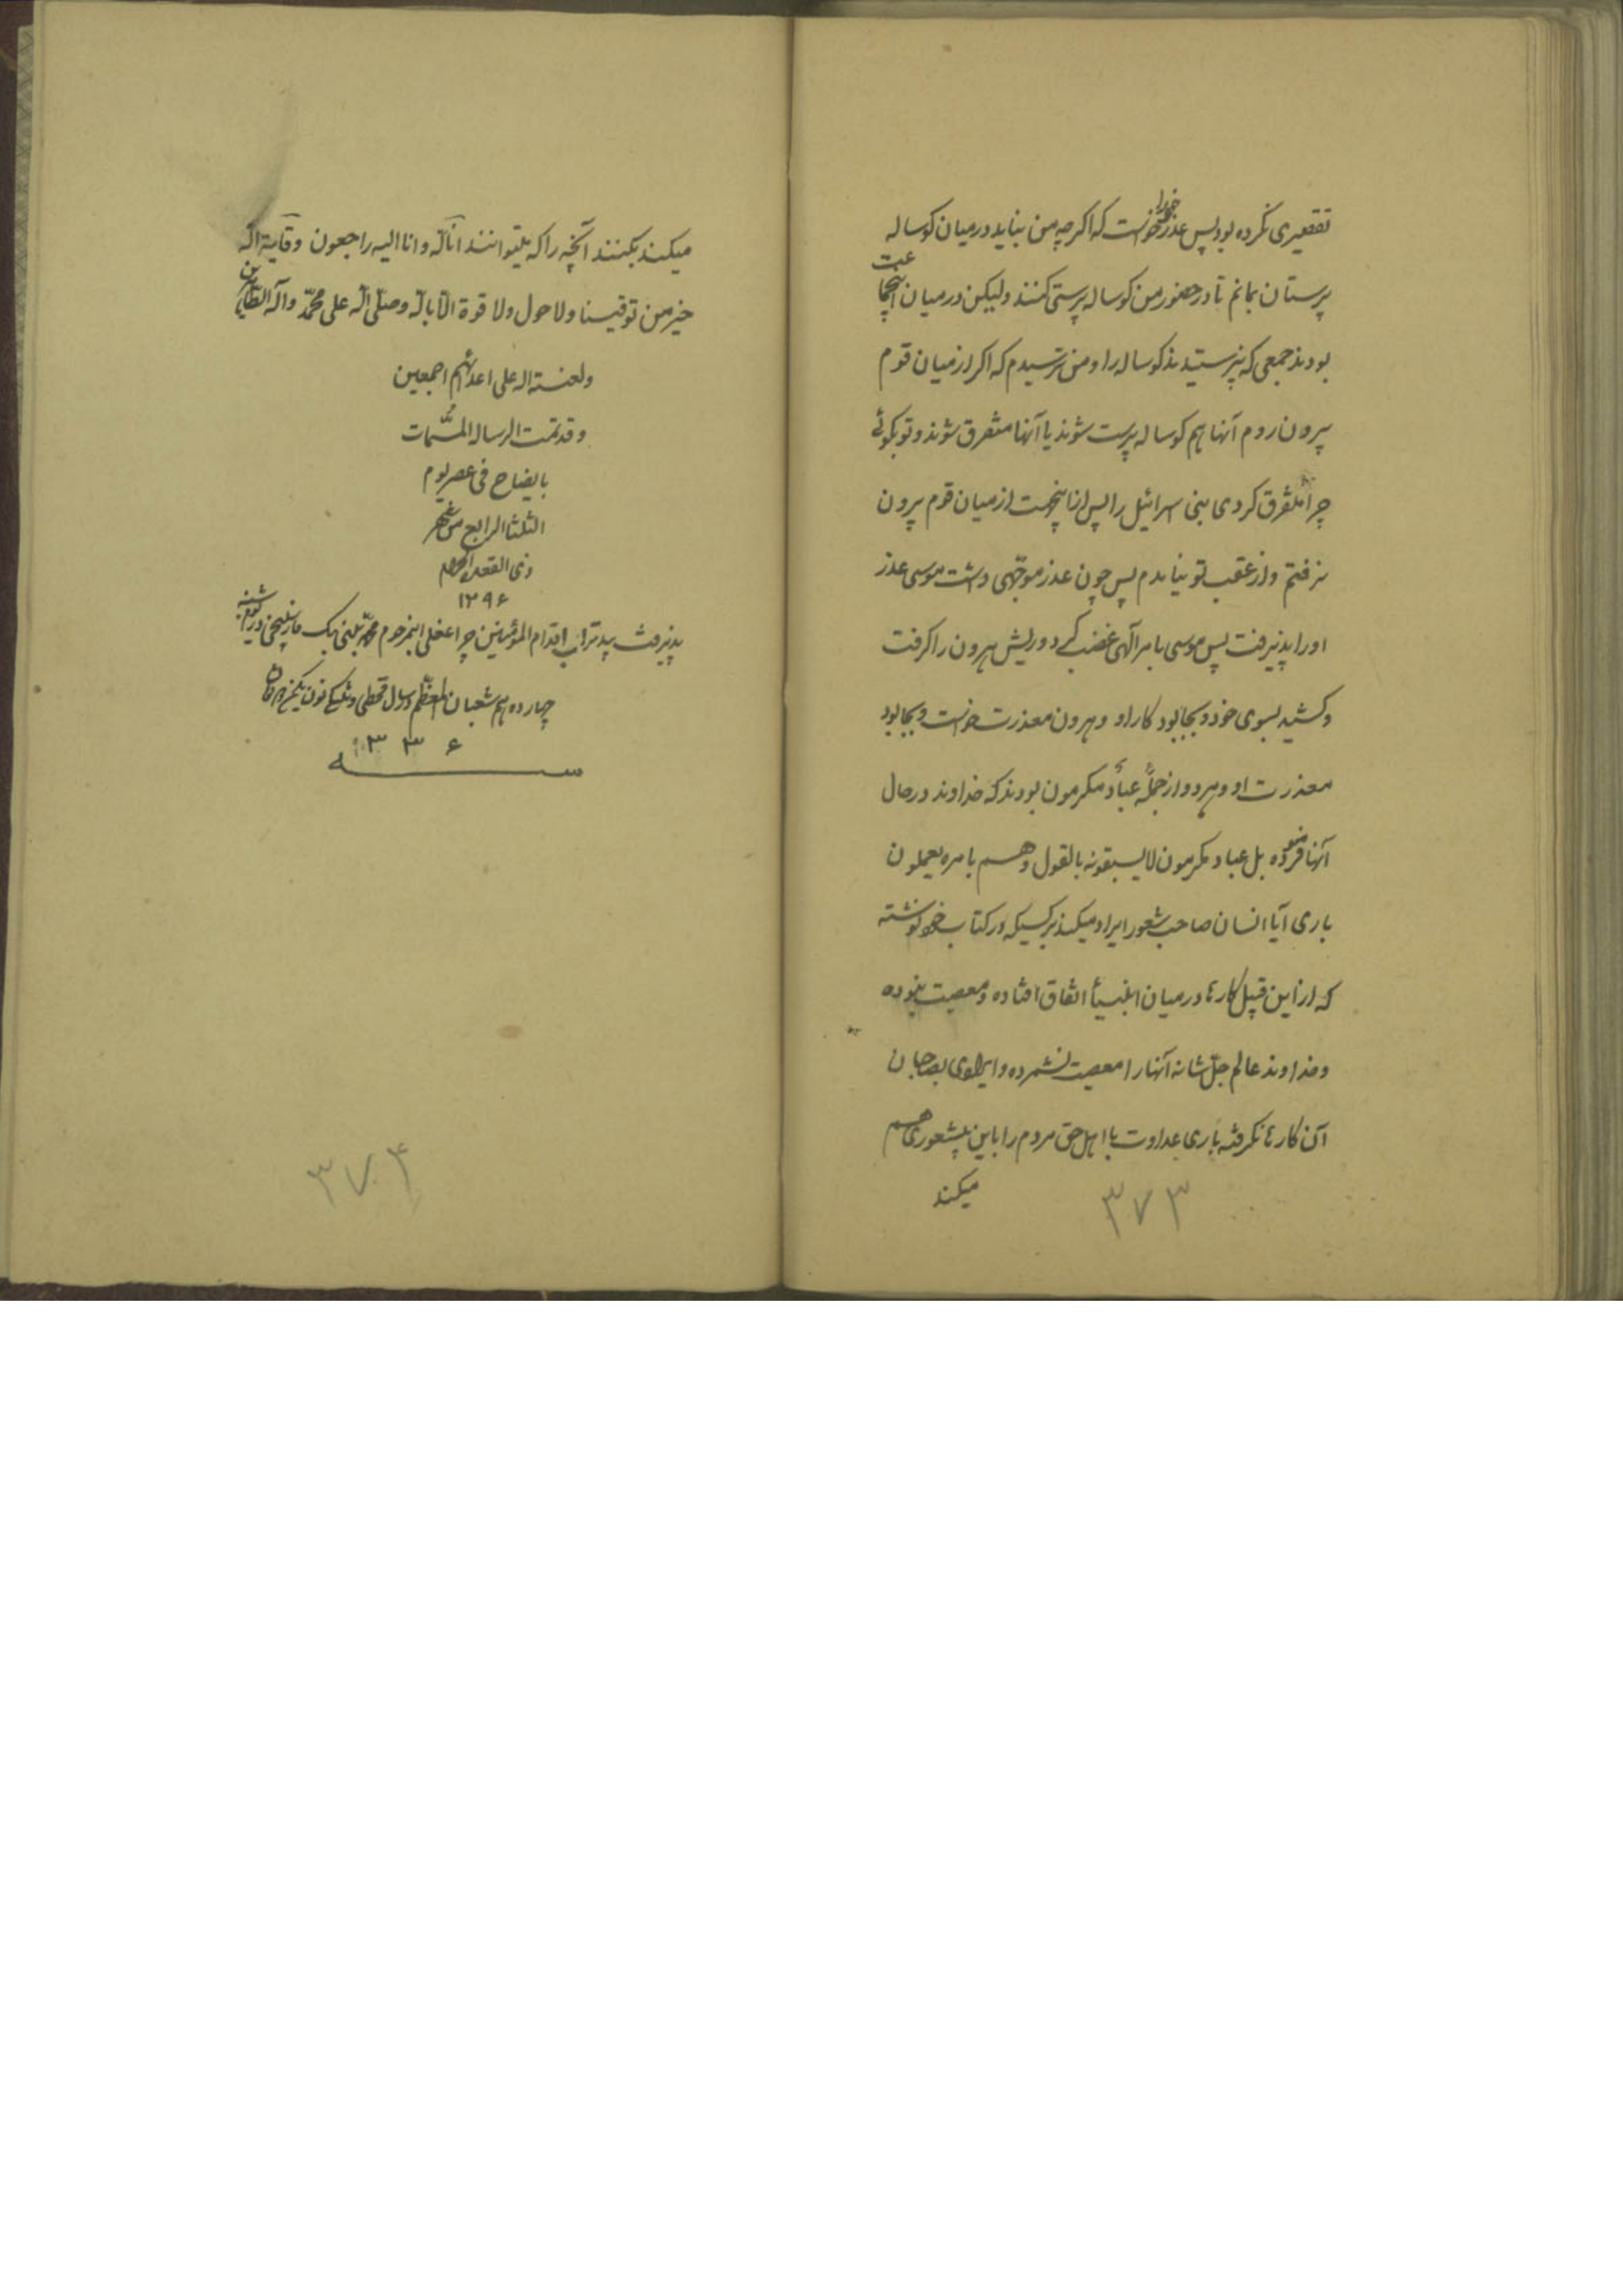 تقصیری نکرده بود پس عذر خود را خواست که اگرچه من نباید در میان گوساله
پرستان بمانم تا در حضور من گوساله پرستی کنند ولیکن در میان اینجماعت
بودند جمعی که نپرستیدند گوساله را و من ترسیدم که اگر از میان قوم
بیرون روم آنها هم گوساله پرست شوند یا آنها متفرق شوند و تو بگوئی
چرا متفرق کردی بنی اسرائیل را پس از اینجهت از میان قوم بیرون
نرفتم و از عقب تو نیامدم پس چون عذر موجّهی داشت موسی عذر
او را پذیرفت پس موسی بامر الهی غضب کرد و ریش هرون را گرفت
و کشید بسوی خود و بجا بود کار او و هرون معذرت خواست و بجا بود
معذرت او و هر دو از جملهٔ عباد مکرمون بودند که خداوند در حال
آنها فرموده بل عباد مکرمون لایسبقونه بالقول وهم بامره یعملون
باری آیا انسان صاحب شعور ایراد میکند بر کسیکه در کتاب خود نوشته
که از این قبیل کارها در میان انبیأ اتفاق افتاده و معصیت نبوده
و خداوند عالم جلّ شانه آنها را معصیت نشمرده و ایرادی بصاحبان
آن کارها نگرفته باری عداوت با اهل حق مردم را باین بیشعوری هم
میکند
۳۷۳
میکند بکنند آنچه را که میتوانند انّا لله و انا الیه راجعون وقایة الله
خیر من توقینا ولا حول ولا قوة الّا بالله وصلّی الله علی محمّد وآله الطّاهرین
ولعنة الله علی اعدائهم اجمعین
وقد تمت الرساله المسمّات
بایضاح فی عصر یوم
الثلثا الرابع من شهر
ذی القعدة الحرام
۱۲۹۶
پذیرفت بید تراب اقدام المؤمنین چراغعلی ابن مرحوم محمّد بیک در یوم شنبه
چهاردهم شعبان المعظّم در سال قحطی
۱۳۳۶
۳۷۴